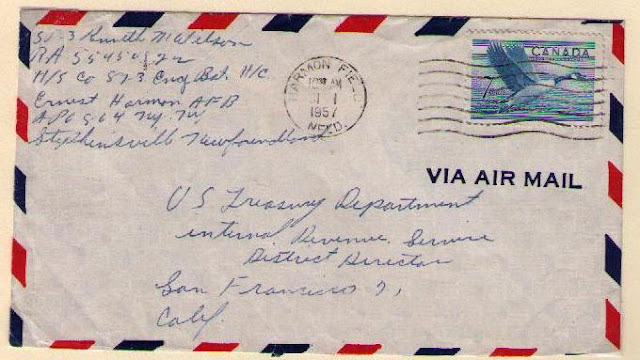 SP-3 Kenneth M Wilson
RA 55450
H/S Co 573 Eng Bat. H/C
Ernest Harmon AFB
APO 864 NY. NY
Stephensville Newfoundland
HARMON FIELD
1957
NFLD.
CANADA
7
VIA AIR MAIL
US Treasury Department
internal Revenue Service
District Director
San Francisco 2,
Calif.